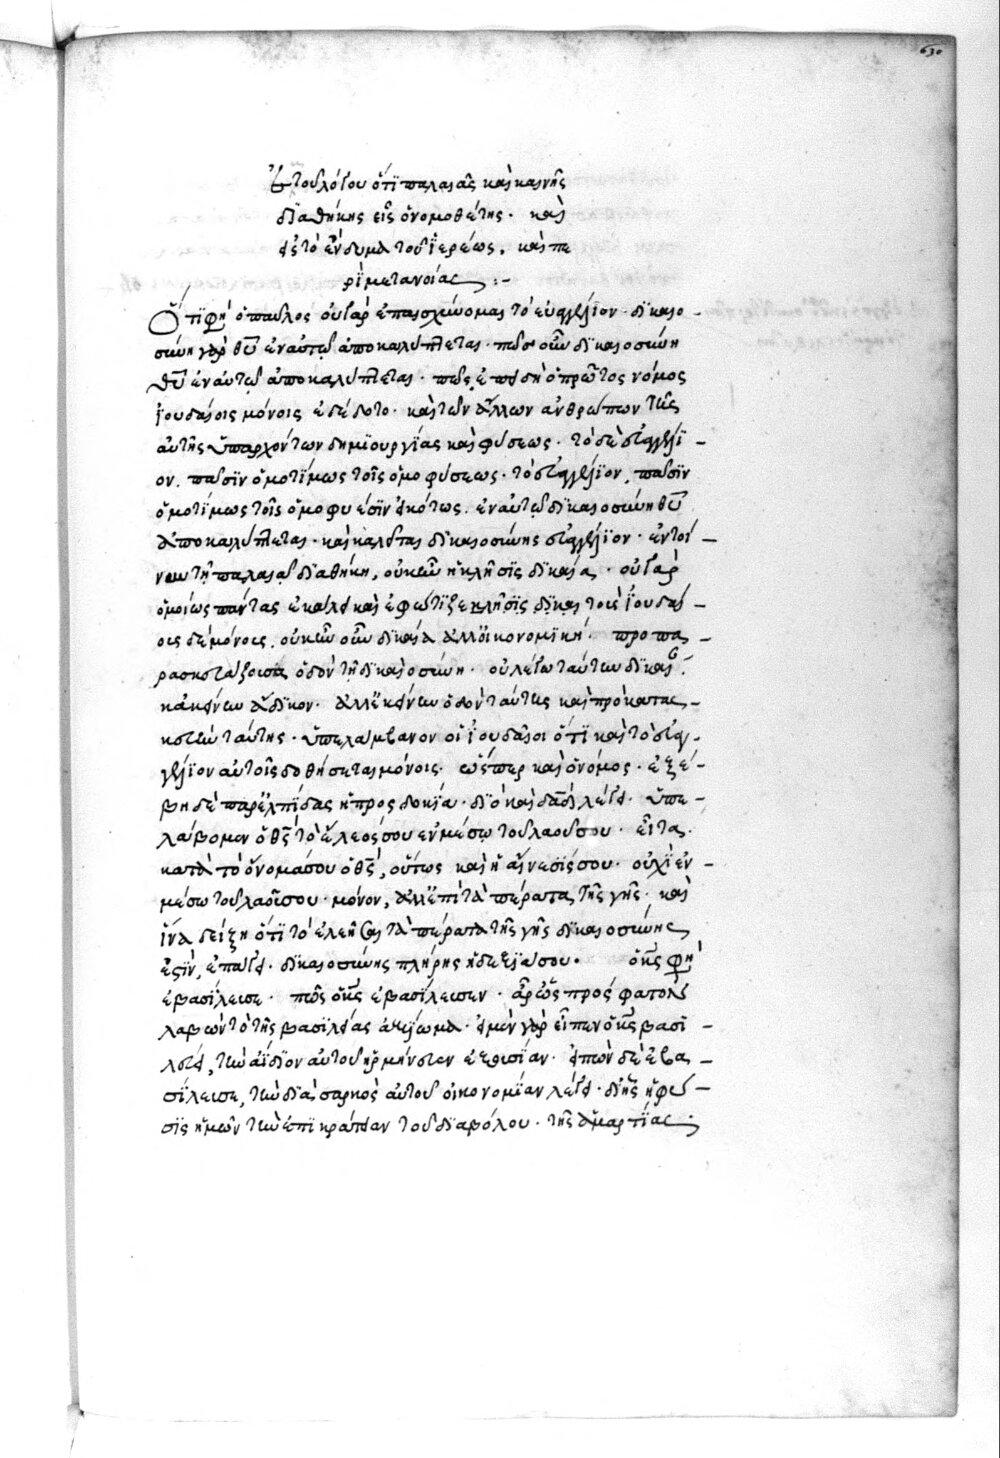 630
ἐκ τοῦ λόγου ὅτι παλαιᾶς καὶ καινῆς
διαθήκης εἷς ὁ νομοθέτης· καὶ
εἰς τὸ ἔνδυμα τοῦ ἱερέως, καὶ πε
ρὶ μετανοίας :-
Ὅτι φη ὁ παῦλος οὐ γὰρ ἐπαισχύνομαι τὸ εὐαγγέλιον· δικαιο-
σύνη γὰρ θῦ ἐν αὐτῷ ἀποκαλύπτεται· πῶς οὖν δικαιοσύνη
θῦ ἐν αὐτῷ ἀποκαλύπτεται· πῶς, ἐπειδὴ ὁ πρῶτος νόμος
ἰουδαίοις μόνοις ἐδέδοτο· καὶ τῶν ἄλλων ἀνθρώπων τῆς
αὐτῆς ὑπαρχόντων δημιουργίας καὶ φύσεως· τὸ δὲ εὐαγγέλι-
ον, πᾶσιν ὁμοτίμως τοῖς ὁμοφύσεως· τὸ εὐαγγέλιον, πᾶσιν
ὁμοτίμως τοῖς ὁμοφυέσιν εἰκότως. ἐν αὐτῷ δικαιοσύνη θῦ
ἀποκαλύπτεται· καὶ καλεῖται δικαιοσύνης εὐαγγέλιον· ἐν τοί-
νυν τῇ παλαιᾷ διαθήκῃ, οὐκ ἦν ἡ κλῆσις δικαία· οὐ γὰρ
ὁμοίως πάντας ἐκάλει καὶ ἐφώτιζε κλῆσις δίκαι τοὺς ἰουδαί-
οις δὲ μόνοις. οὐκ ἦν οὖν δικαία ἀλλ' οἰκονομική· προπα-
ρασκευάζουσα ὁδὸν τῇ δικαιοσύνῃ· οὐ λέγω ταύτην δικαι
κἀκείνην ἄδικον· ἀλλ' ἐκείνην ὁδὸν ταύτης καὶ προκατας-
κευὴν ταύτης· ὑπελάμβανον οἱ ἰουδαῖοι ὅτι καὶ τὸ εὐαγ-
γέλιον αὐτοῖς δοθήσεται μόνοις· ὥσπερ καὶ ὁ νόμος· ἐξέ-
βη δὲ παρ' ἐλπίδας ἡ προσδοκία· διὸ καὶ δαδ λέγει· ὑπε-
λάβομεν ὁ θς τὸ ἔλεός σου ἐν μέσῳ τοῦ λαοῦ σου· εἶτα·
κατὰ τὸ ὄνομά σου ὁ θς, οὕτως καὶ ἡ αἴνεσίς σου· οὐχὶ ἐν-
μέσῳ τοῦ λαοῦ σου· μόνον, ἀλλ' ἐπὶ τὰ πέρατα τῆς γῆς· καὶ
ἵνα δείξῃ ὅτι τὸ ἐλεῆσαι τὰ πέρατα τῆς γῆς δικαιοσύνης
ἐστὶν, ἐπάγει· δικαιοσύνης πλήρης ἡ δεξιά σου· ὁ κς φη
ἐβασίλευσε· πῶς ὁ κς ἐβασίλευσεν· ἆρ' ὡς πρόσφατον
λαβὼν τὸ τῆς βασιλείας ἀξίωμα· εἰ μὲν γὰρ εἶπεν ὁ κς βασι-
λεύει, τὴν ἀίδιον αὐτοῦ ἡρμήνευεν ἐξουσίαν· εἰπὼν δὲ ἐβα-
σίλευσε, τὴν διὰ σαρκὸς αὐτοῦ οἰκονομίαν λέγει· δι' ἧς ἡ φύ-
σις ἡμῶν τὴν ἐπικράτειαν τοῦ διαβόλου· τῆς ἁμαρτίας